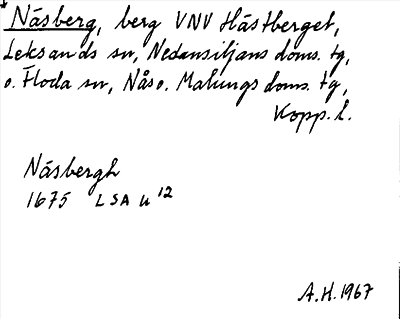 Näsberg, berg VNV Hästberget,
Leksands sn, Nedansiljans doms. tg,
o. Floda sn, Nås o. Malungs doms. tg,
Kopp. l.
Näsbergh
1675 LSA U 12
A.H. 1967